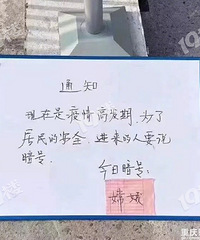 通知
现在是疫情高发期,为了
居民的安全,进来的人要说
暗号。
今日暗号:
嫦娥